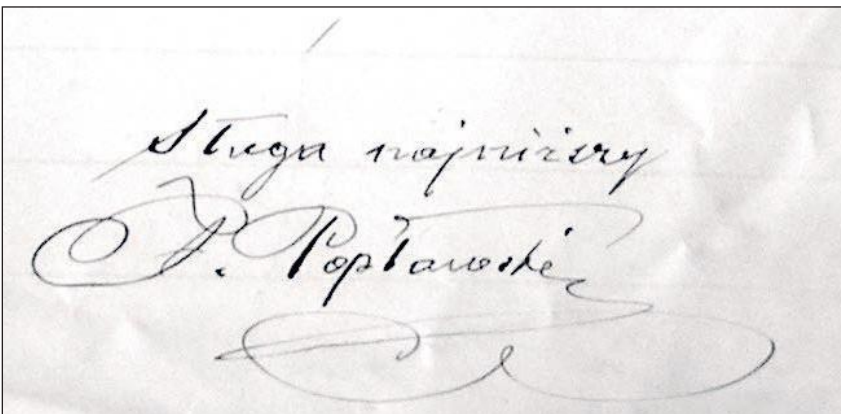 sługa najniższy
P. Popławski